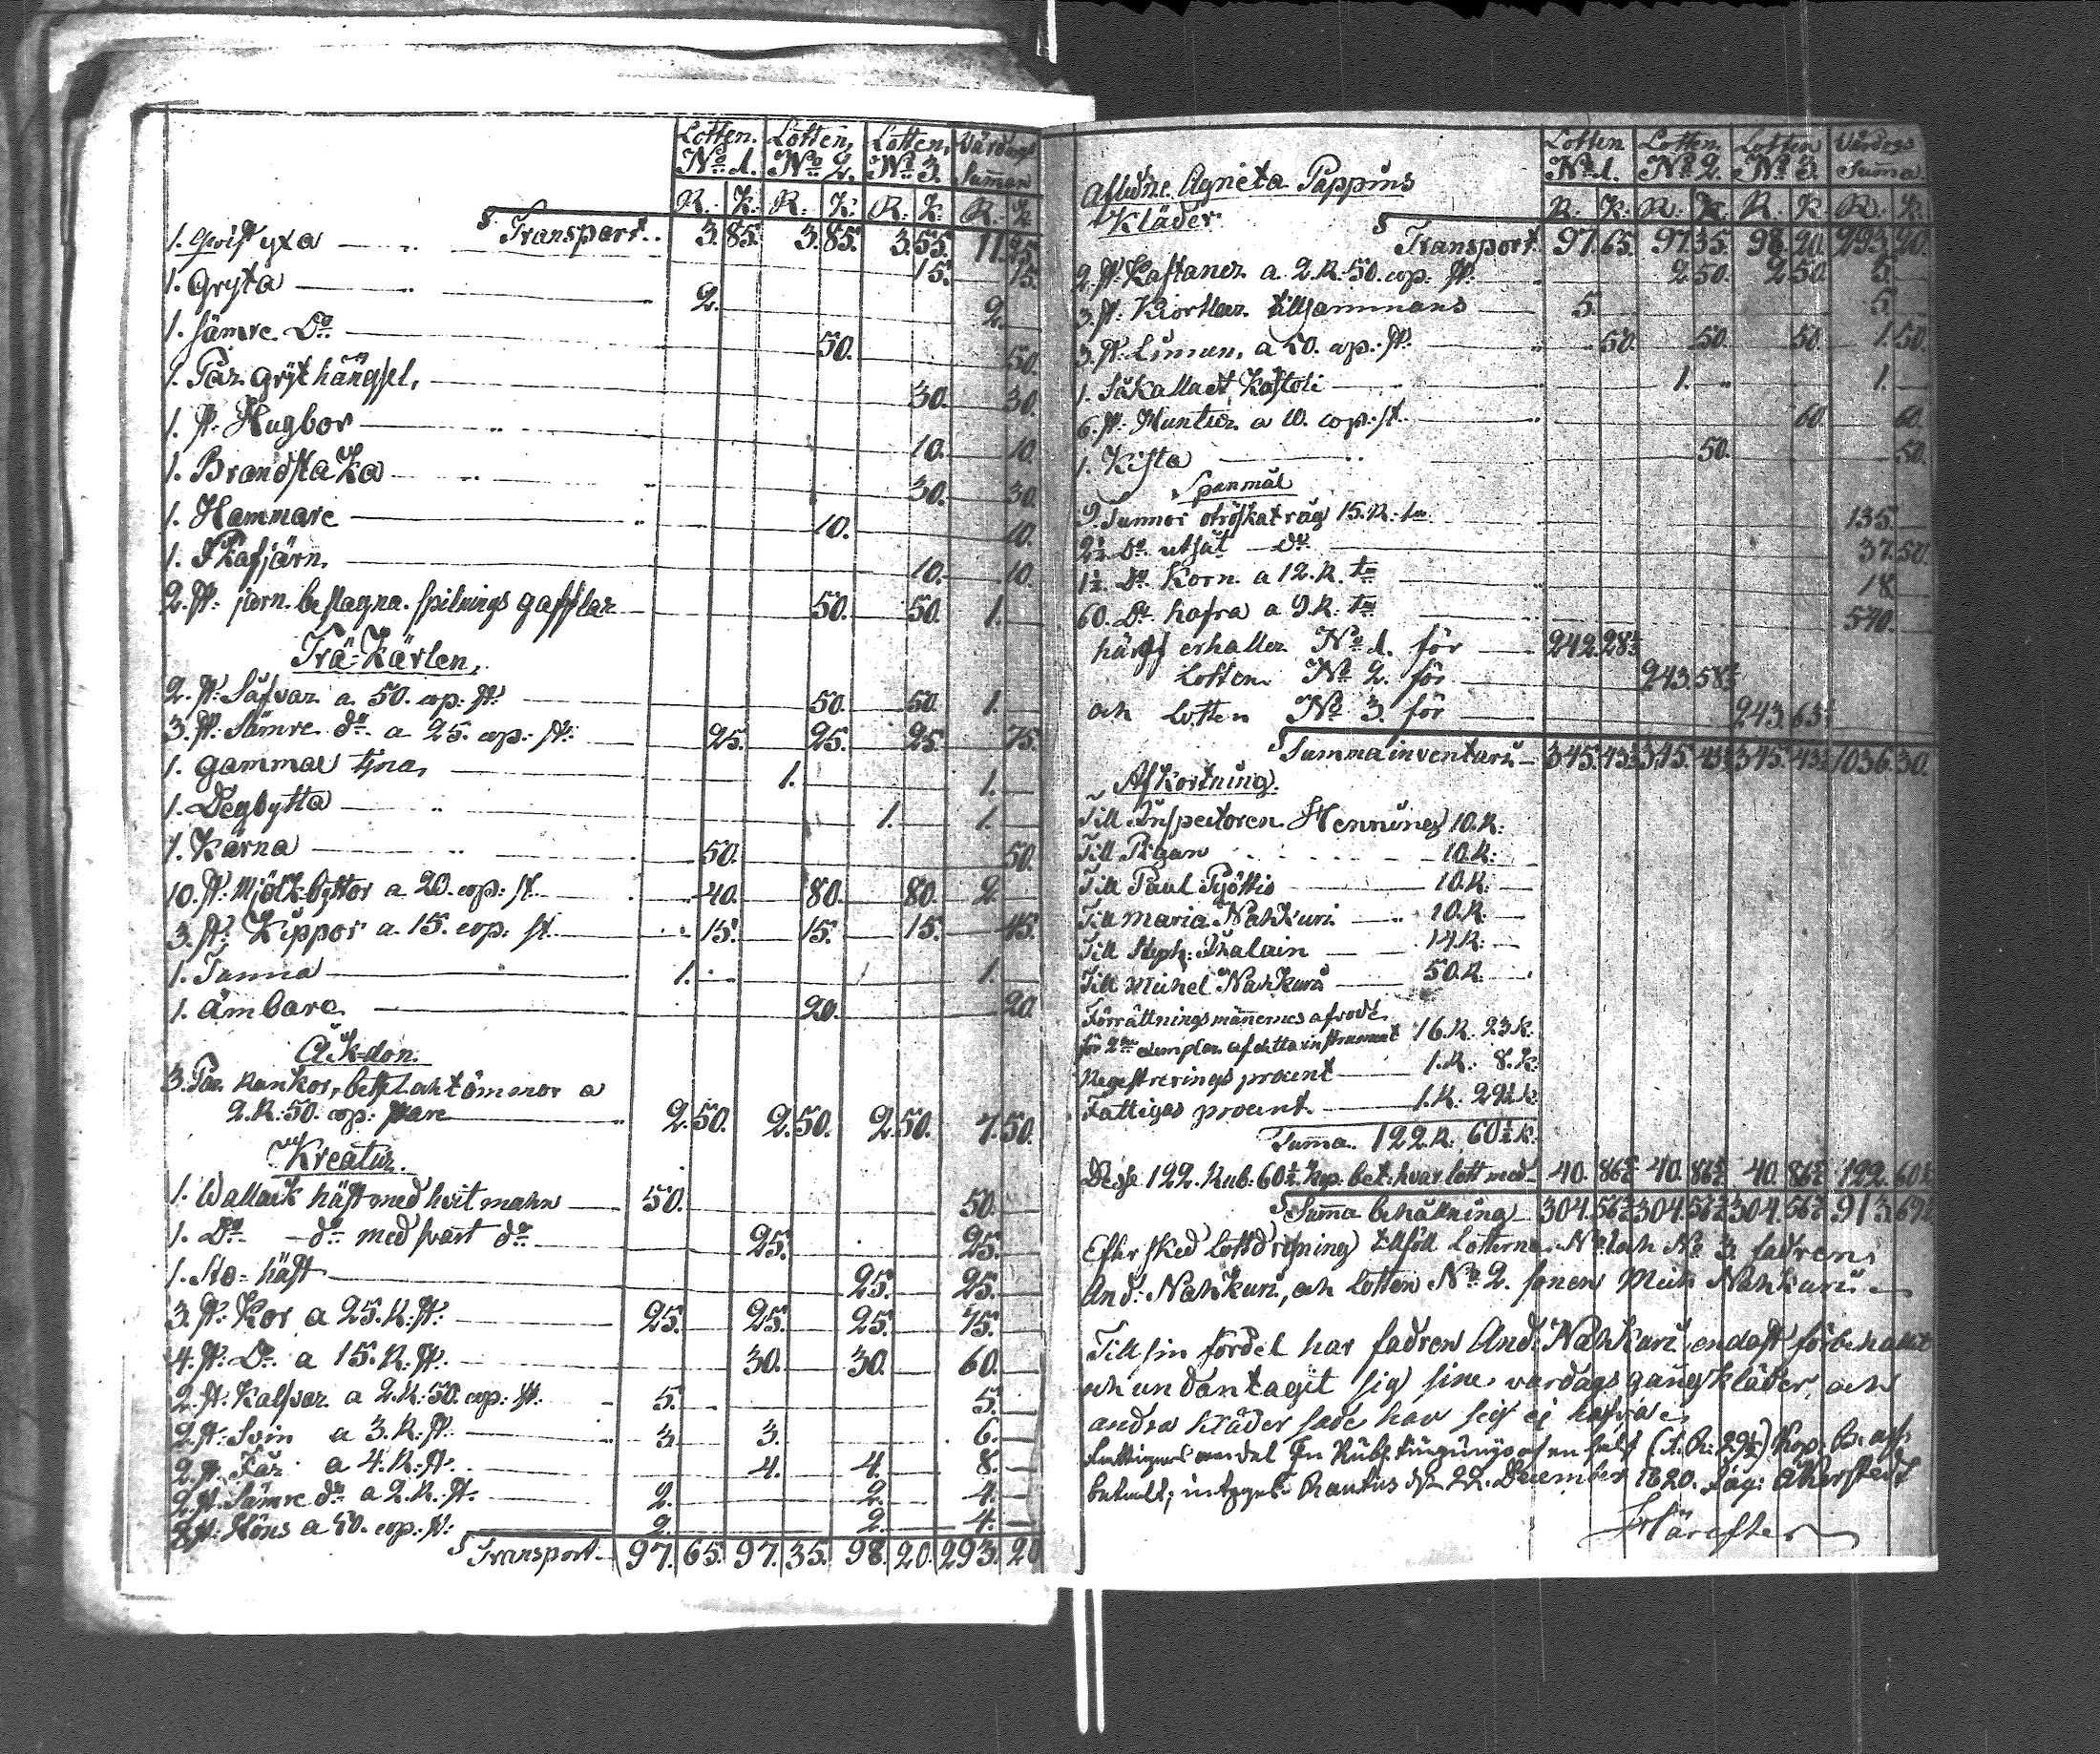 Lotten. Lotten, Lotten, Värdings
No 1. No 2. No 3. Summan
R. K. R. K. R. K. R. K
S Transport 3. 85. 3. 85. 3. 55. 11. 25.
1. qvist yxa 15. 15.
1. Gryta 2. 2.
1. sämre Do 50. 50.
1. Par grythängsel, 30. 30.
1. st. Hugbor 10. 10.
1. Brandstaka 30. 30.
1. Hammare 10. 10.
1. Skafjärn. 10. 10.
2. st. järn beslagna spilnings gafflar 50. 50. 1.
Trä-Kärlen.
2. st. Såfvar a 50. cop. st. 50. 50. 1.
3. st. Sämre do a 25. cop. st. 25. 25. 25. 75.
1. gammal tjna, 1. 1.
1. Degbytta 1. 1.
1. Kärna 50. 50.
10. st. Mjölkbyttor a 20. cop. st. 40. 80. 80. 2.
3. st. Kippor a 15. cop. st. 15. 15. 15. 45.
1. Tunna 1. 1.
1. ämbare 20. 20.
Åk-don.
3. Par Rankor, bett och tömmor a
2. R. 50. cop. pare 2. 50. 2. 50. 2. 50. 7. 50.
Kreatur.
1. Wallack häst med hvit mahn 50. 50.
1. Do do med svart do 25. 25.
1. Sto-häst 25. 25.
3. st. Kor a 25. R. st. 25. 25. 25. 75.
4. st. Do a 15. R. st. 30. 30. 60.
2. st. Kalfvar a 2. R. 50. cop. st. 5. 5.
2. st. Svin a 3. R. st. 3. 3. 6.
2. st. Får a 4. R. st. 4. 4. 8.
2. st. Sämre do a 2. R. st. 2. 2. 4.
8. st. Höns a 50. cop. st. 2. 2. 4.
S Transport 97. 65. 97. 35. 98. 20. 293. 20
Lotten Lotten. Lotten Värdogs
No 1. No 2. No 3. Summa
Afledne Agneta Pappins
Kläder
R. K. R. K. R. K. R. K.
S Transport 97. 65. 97. 35. 98. 20. 293. 20.
2. st. Kaftaner a 2. R. 50. cop. st. 2 50. 2 50. 5.
3. st. Kiortlar tillsammans 5. 5.
3. st. Linnen, a 50. cop. st. 50. 50. 50. 1. 50.
1. Såkallad Kastoli 1. 1.
6. st. Huntur a 10. cop. st. 60. 60.
1. Kista 50. 50.
Spanmål
9. Tunnor otröskat råg 15. R. tn 135.
2½ Do utsåt do 37. 50.
1½ Do Korn a 12. R. tn 18.
60. Do hafra a 9. R. tn 540.
häraf erhaller No 1. för 242. 28⅓
Lotten No 2. för 243. 58⅓
och Lotten No 3. för 243. 63⅓
S Summa inventarii 345. 43⅓ 345. 43⅓ 345. 43⅓ 1036. 30.
Afkortning.
Till Inspectoren Henning 10. R.
Till Pigan 10. R.
Till Paul Pyöttis 10. R.
Till Maria Nahkuri 10. R.
Till Steph. 14. R.
Till Michel Nahkuri 50. R.
Förrättningsmännernes afvode
för 2ne exemplar af detta instrument 16. R. 23 K.
Regestrerings procent 1. R. 8. K.
Fattigas procent. 1. R. 29½ K.
Summa. 122. R. 60½ K.
Desse 122. Rub. 60½ Kop. bet. hvar lott med 40. 86⅚ 40. 86⅚ 40. 86⅚ 122. 60½
S Summa behållning 304. 56½ 304. 56½ 304. 56½ 913. 69½
Efter sked lottdragning tillföll Lotterne No 1 och No 3 fadren
And. Nahkuri, och Lotten No 2. sonen Mich Nahkuri
Till sin fördel har fadren And. Nahkuri endast förbehållit
och undantagit sig sine vardags gångkläder och
andra Kläder sade han sig ej hafva
Fattigas andel En Rub. tingunyo af en half (1. R. 29½) Kop. B. ass.
betalt; intygas. Rantus d. 22. December 1820. Jag: Åkerstedt
Härefter